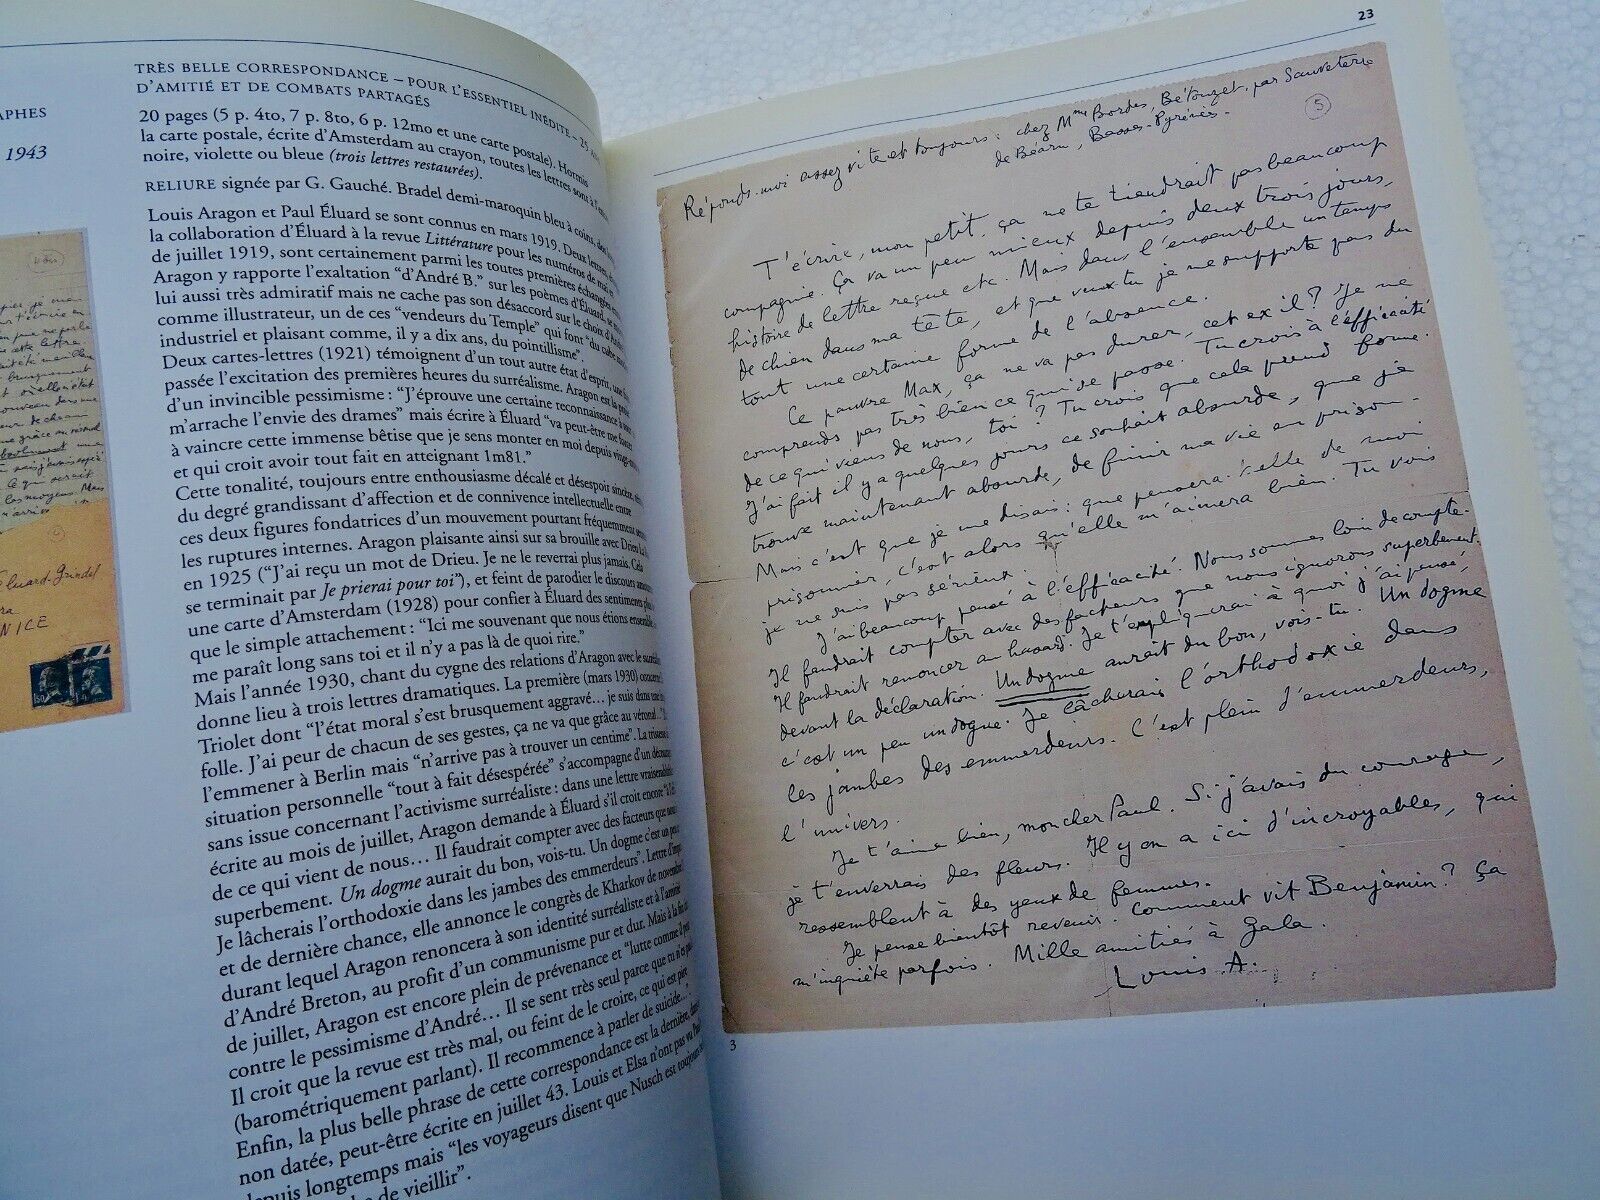 APHES
1943
Éluard-Grindel
NICE
TRÈS BELLE CORRESPONDANCE – POUR L'ESSENTIEL INÉDITE – 25
D'AMITIÉ ET DE COMBATS PARTAGÉS
20 pages (5 p. 4to, 7 p. 8to, 6 p. 12mo et une carte postale). Hormis
la carte postale, écrite d'Amsterdam au crayon, toutes les lettres sont à l'encre
noire, violette ou bleue (trois lettres restaurées).
RELIURE signée par G. Gauché. Bradel demi-maroquin bleu à coins,
Louis Aragon et Paul Éluard se sont connus en mars 1919. Deux lettres,
la collaboration d'Éluard à la revue Littérature pour les numéros de mai et
de juillet 1919, sont certainement parmi les toutes premières échangées
Aragon y rapporte l'exaltation “d'André B.” sur les poèmes d'Éluard, se
lui aussi très admiratif mais ne cache pas son désaccord sur le choix
comme illustrateur, un de ces “vendeurs du Temple” qui font “du cube
industriel et plaisant comme, il y a dix ans, du pointillisme”.
Deux cartes-lettres (1921) témoignent d'un tout autre état d'esprit, une fois
passée l'excitation des premières heures du surréalisme. Aragon est la
d'un invincible pessimisme : “J'éprouve une certaine reconnaissance à
m'arrache l'envie des drames” mais écrire à Éluard “va peut-être me
à vaincre cette immense bêtise que je sens monter en moi depuis vingt
et qui croit avoir tout fait en atteignant 1m81.”
Cette tonalité, toujours entre enthousiasme décalé et désespoir sincère,
du degré grandissant d'affection et de connivence intellectuelle entre
ces deux figures fondatrices d'un mouvement pourtant fréquemment
les ruptures internes. Aragon plaisante ainsi sur sa brouille avec Drieu
en 1925 (“J'ai reçu un mot de Drieu. Je ne le reverrai plus jamais. Cela
se terminait par Je prierai pour toi”), et feint de parodier le discours
une carte d'Amsterdam (1928) pour confier à Éluard des sentiments plus
que le simple attachement : “Ici me souvenant que nous étions ensemble
me paraît long sans toi et il n'y a pas là de quoi rire.”
Mais l'année 1930, chant du cygne des relations d'Aragon avec le
donne lieu à trois lettres dramatiques. La première (mars 1930)
Triolet dont “l'état moral s'est brusquement aggravé... je suis dans une
folle. J'ai peur de chacun de ses gestes, ça ne va que grâce au véronal...”
l'emmener à Berlin mais “n'arrive pas à trouver un centime”. La
situation personnelle “tout à fait désespérée” s'accompagne d'un
sans issue concernant l'activisme surréaliste : dans une lettre
écrite au mois de juillet, Aragon demande à Éluard s'il croit encore
de ce qui vient de nous... Il faudrait compter avec des facteurs que
superbement. Un dogme aurait du bon, vois-tu. Un dogme c'est un peu
Je lâcherais l'orthodoxie dans les jambes des emmerdeurs”. Lettre
et de dernière chance, elle annonce le congrès de Kharkov de novembre
durant lequel Aragon renoncera à son identité surréaliste et à l'amitié
d'André Breton, au profit d'un communisme pur et dur. Mais à la fin
de juillet, Aragon est encore plein de prévenance et “lutte comme il peut
contre le pessimisme d'André... Il se sent très seul parce que tu n'es pas
Il croit que la revue est très mal, ou feint de le croire, ce qui est pire
(barométriquement parlant). Il recommence à parler de suicide...”
Enfin, la plus belle phrase de cette correspondance est la dernière, dans
non datée, peut-être écrite en juillet 43. Louis et Elsa n'ont pas vu Paul
depuis longtemps mais “les voyageurs disent que Nusch est toujours
de vieillir”.
23
Réponds-moi assez vite et toujours : chez Mme Bordes, Bétouzet, par Sauveterre
de Béarn, Basses-Pyrénées.
5
T'écrire, mon petit, ça ne te tiendrait pas beaucoup
compagnie. Ça va un peu mieux depuis deux trois jours,
histoire de lettre reçue etc. Mais dans l'ensemble un temps
de chien dans ma tête, et que veux-tu je ne supporte pas du
tout une certaine forme de l'absence.
Ce pauvre Max, ça ne va pas durer, cet exil ? Je ne
comprends pas très bien ce qui se passe. Tu crois à l'efficacité
de ce qui vient de nous, toi ? Tu crois que cela prend forme.
J'ai fait il y a quelques jours ce souhait absurde, que je
trouve maintenant absurde, de finir ma vie en prison.
Mais c'est que je me disais : que pensera-t-elle de moi
prisonnier, c'est alors qu'elle m'aimera bien. Tu vois
je ne suis pas sérieux.
J'ai beaucoup pensé à l'efficacité. Nous sommes loin de compte.
Il faudrait compter avec des facteurs que nous ignorons superbement.
Il faudrait renoncer au hasard. Je t'expliquerai à quoi j'ai pensé,
devant la déclaration. Un dogme aurait du bon, vois-tu. Un dogme
c'est un peu un dogue. Je lâcherais l'orthodoxie dans
les jambes des emmerdeurs. C'est plein d'emmerdeurs,
l'univers.
Je t'aime bien, mon cher Paul. Si j'avais du courage,
je t'enverrais des fleurs. Il y en a ici d'incroyables, qui
ressemblent à des yeux de femmes.
Je pense bientôt revenir. Comment vit Benjamin ? Ça
m'inquiète parfois. Mille amitiés à Gala.
Louis A.
3